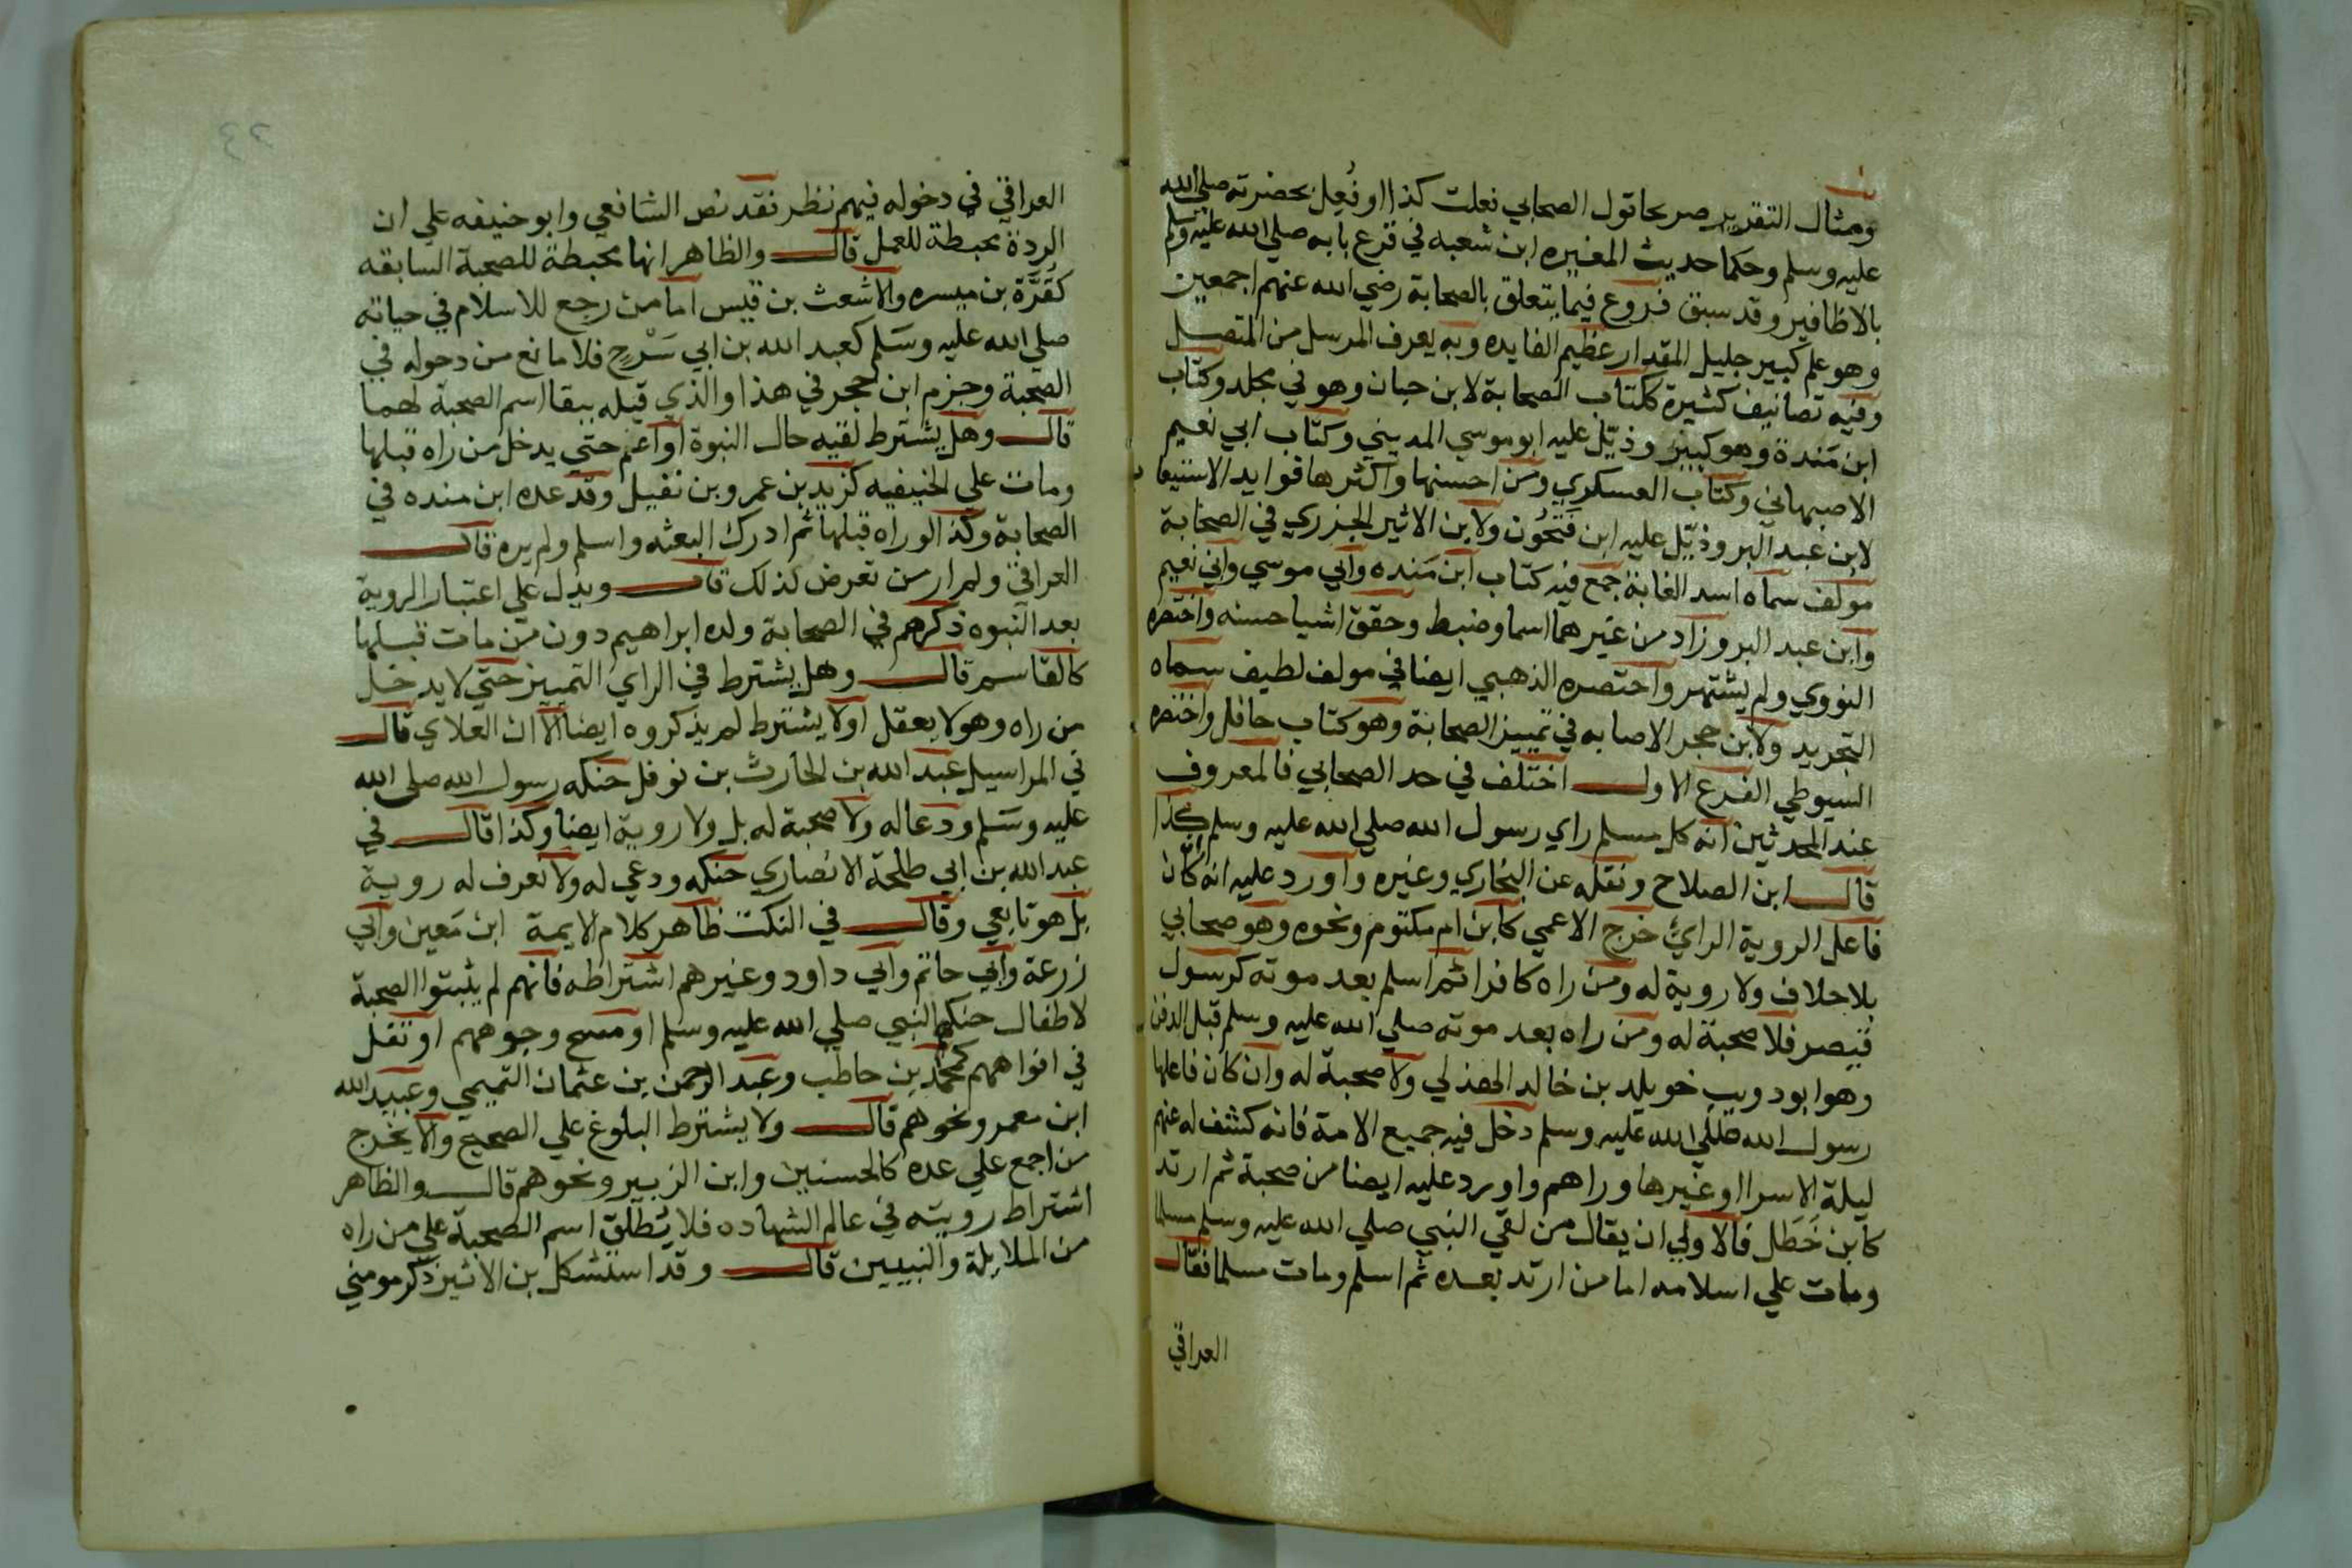 ومثال التقرير صريحا قول الصحابي فعلت كذا او فُعِل بحضرته صلي الله
عليه وسلم وحكما حديث المغيره ابن شعبه في قرع بابه صلي الله عليه وسلم
بالاظافير وقد سبق فروع فيما يتعلق بالصحابة رضي الله عنهم اجمعين
وهو علم كبير جليل المقدار عظيم الفايده وبه يعرف المرسل من المتصل
وفيه تصانيف كثيرة ككتاب الصحابة لابن حبان وهو في مجلد وكتاب
ابن مَندة وهو كبير وذيّل عليه ابو موسي المديني وكتاب ابي نعيم
الاصبهاني وكتاب العسكري ومن احسنها واكثرها فوايد الاستيعاب
لابن عبد البر وذيّل عليه ابن فَتحُون ولابن الاثير الجزري في الصحابة
مولف سماه اسد الغابة جمع فيه كتاب ابن مَنده وابي موسي وابي نعيم
وابن عبد البر وزاد من غيرهما اسما وضبط وحقق اشيا حسنه واختصره
النووي ولم يشتهر واختصره الذهبي ايضا في مولف لطيف سماه
التجريد ولابن حجر الاصابه في تمييز الصحابة وهو كتاب حافل واختصره
السيوطي الفرع الاول اختلف في حد الصحابي فالمعروف
عند المحدثين انه كل مسلم راي رسول الله صلي الله عليه وسلم كذا
قال ابن الصلاح ونقله عن البخاري وغيره واورد عليه انه كان
فاعل الروية الرائي خرج الاعمي كابن ام مكتوم ونحوه وهو صحابي
بلا خلاف ولا روية له ومن راه كافرا ثم اسلم بعد موته كرسول
قيصر فلا صحبة له ومن راه بعد موته صلي الله عليه وسلم قبل الدفن
وهو ابو دويب خويلد بن خالد الهذلي ولا صحبة له وان كان فاعلها
رسول الله صلي الله عليه وسلم دخل فيه جميع الامة فانه كشف له عنهم
ليلة الاسرا او غيرها وراهم واورد عليه ايضا من صحبة ثم ارتد
كابن خَطَل فالاولي ان يقال من لقي النبي صلي الله عليه وسلم مسلما
ومات علي اسلامه اما من ارتد بعده ثم اسلم ومات مسلما فقال
العراقي
العراقي في دخوله فيهم نظر فقد نص الشافعي وابو حنيفه علي ان
الردة محبطة للعمل قال والظاهر انها محبطة للصحبة السابقه
كقرّة بن ميسره والاشعث بن قيس اما من رجع للاسلام في حياته
صلي الله عليه وسَلم كعبد الله بن ابي سَرْح فلا مانع من دخوله في
الصحبة وجزم ابن حجر في هذا والذي قبله ببقا اسم الصحبة لهما
قال وهل يشترط لقيه حال النبوة او اعم حتي يدخل من راه قبلها
ومات علي الحنيفيه كزيد بن عمرو بن نفيل وقد عده ابن منده في
الصحابة وكذا لو راه قبلها ثم ادرك البعثه واسلم ولم يره قال
العراقي ولم ار من تعرض لذلك قال ويدل علي اعتبار الروية
بعد النبوه ذكرهم في الصحابة ولده ابراهيم دون من مات قبلها
كالقاسم قال وهل يشترط في الراي التمييز حتي لا يدخل
من راه وهو لا يعقل او لا يشترط لم يذكروه ايضا الا ان العلاي قال
في المراسيل عبد الله بن الحارث بن نوفل حنكه رسول الله صلي الله
عليه وسَلم ودعا له ولا صحبة له بل ولا روية ايضا وكذا قال في
عبد الله بن ابي طلحة الانصاري حنكه ودعي له ولا تعرف له روية
بل هو تابعي وقال في النكت ظاهر كلام الايمة ابن مَعين وابي
زرعة وابي حاتم وابي داود وغيرهم اشتراطه فانهم لم يثبتوا الصحبة
لاطفال حنكهم النبي صلي الله عليه وسلم او مسح وجوههم او تفل
في افواههم كمحمد بن حاطب وعبد الرحمن بن عثمان التميمي وعبيد الله
ابن معمر ونحوهم قال ولا يشترط البلوغ علي الصحيح والا يخرج
من اجمع علي عده كالحسنين وابن الزبير ونحوهم قال والظاهر
اشتراط رويته في عالم الشهاده فلا يُطلق اسم الصحبة علي من راه
من الملايلة والنبيين قال وقد استشكل بن الاثير ذكر مومني